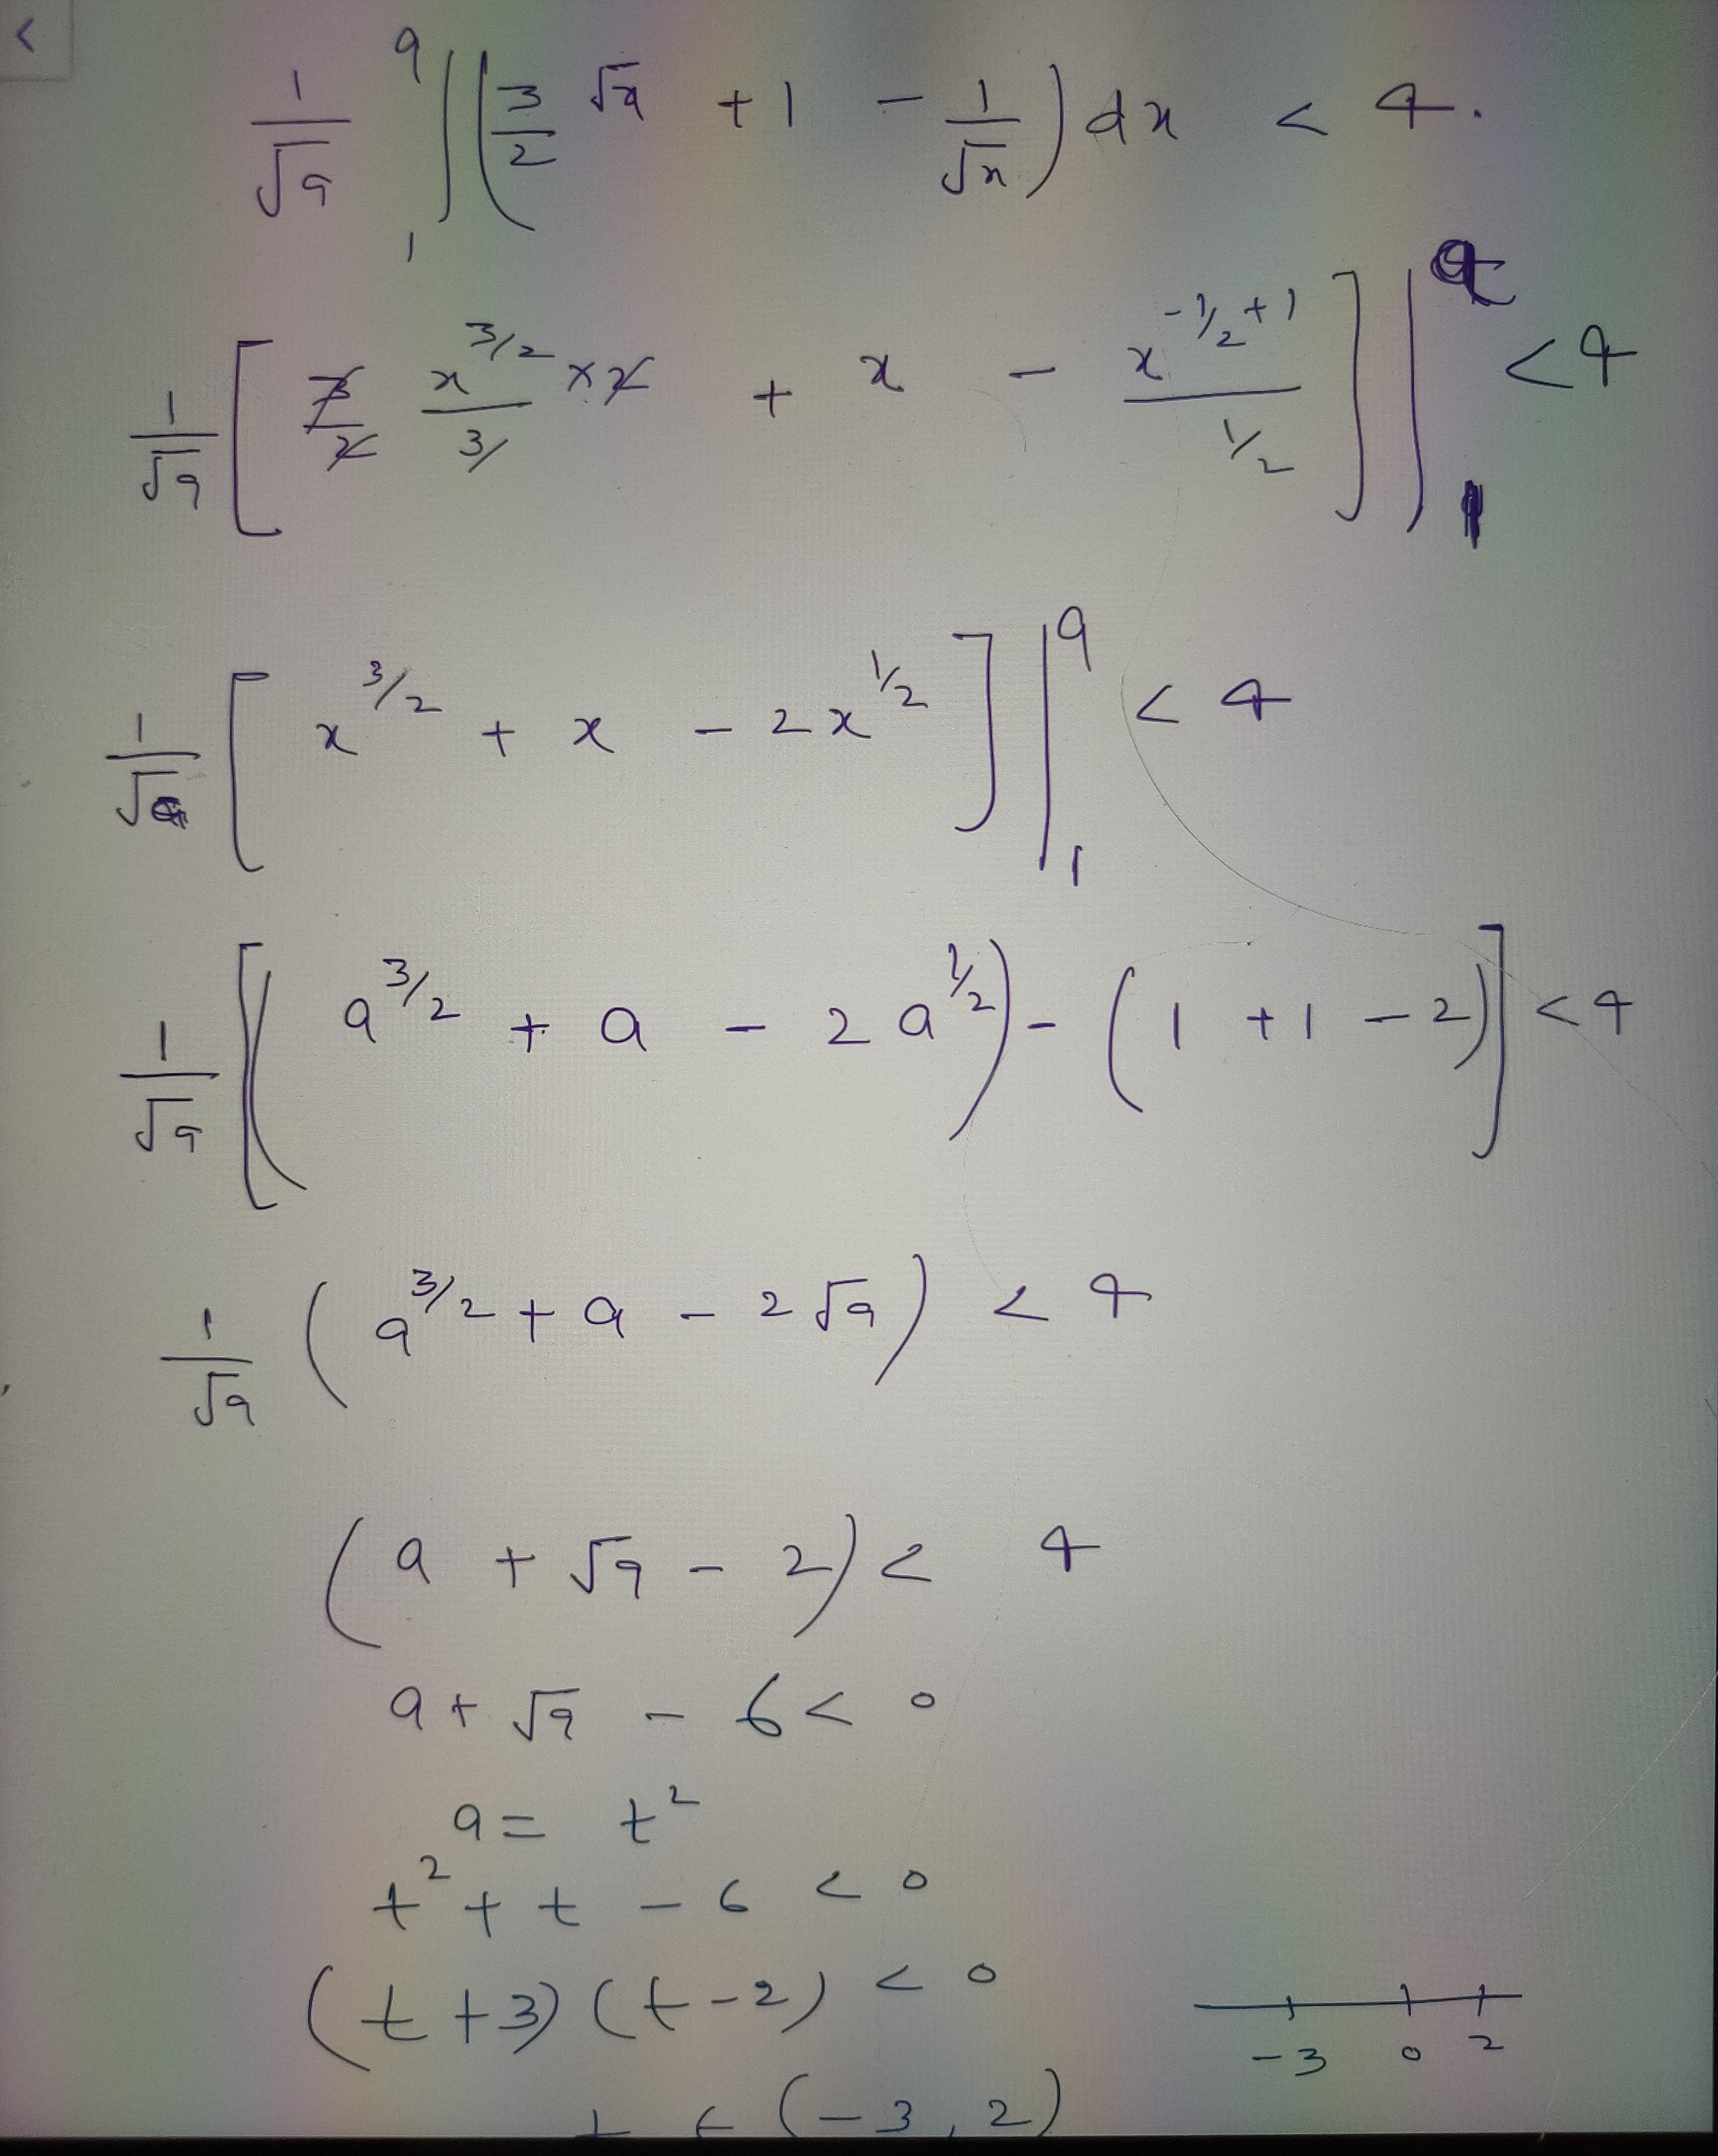 <
1/√a ₁∫ᵃ (3/2 √x + 1 − 1/√x) dx < 4.
1/√a [ 3/2 x^(3/2)/3 × 2 + x − x^(−1/2+1)/(1/2) ] |₁ᵃ < 4
1/√a [ x^(3/2) + x − 2x^(1/2) ] |₁ᵃ < 4
1/√a [ ( a^(3/2) + a − 2a^(1/2) ) − ( 1 + 1 − 2 ) ] < 4
1/√a ( a^(3/2) + a − 2√a ) < 4
( a + √a − 2 ) < 4
a + √a − 6 < 0
a = t²
t² + t − 6 < 0
(t + 3) (t − 2) < 0
−3 0 2
t ∈ (−3, 2)